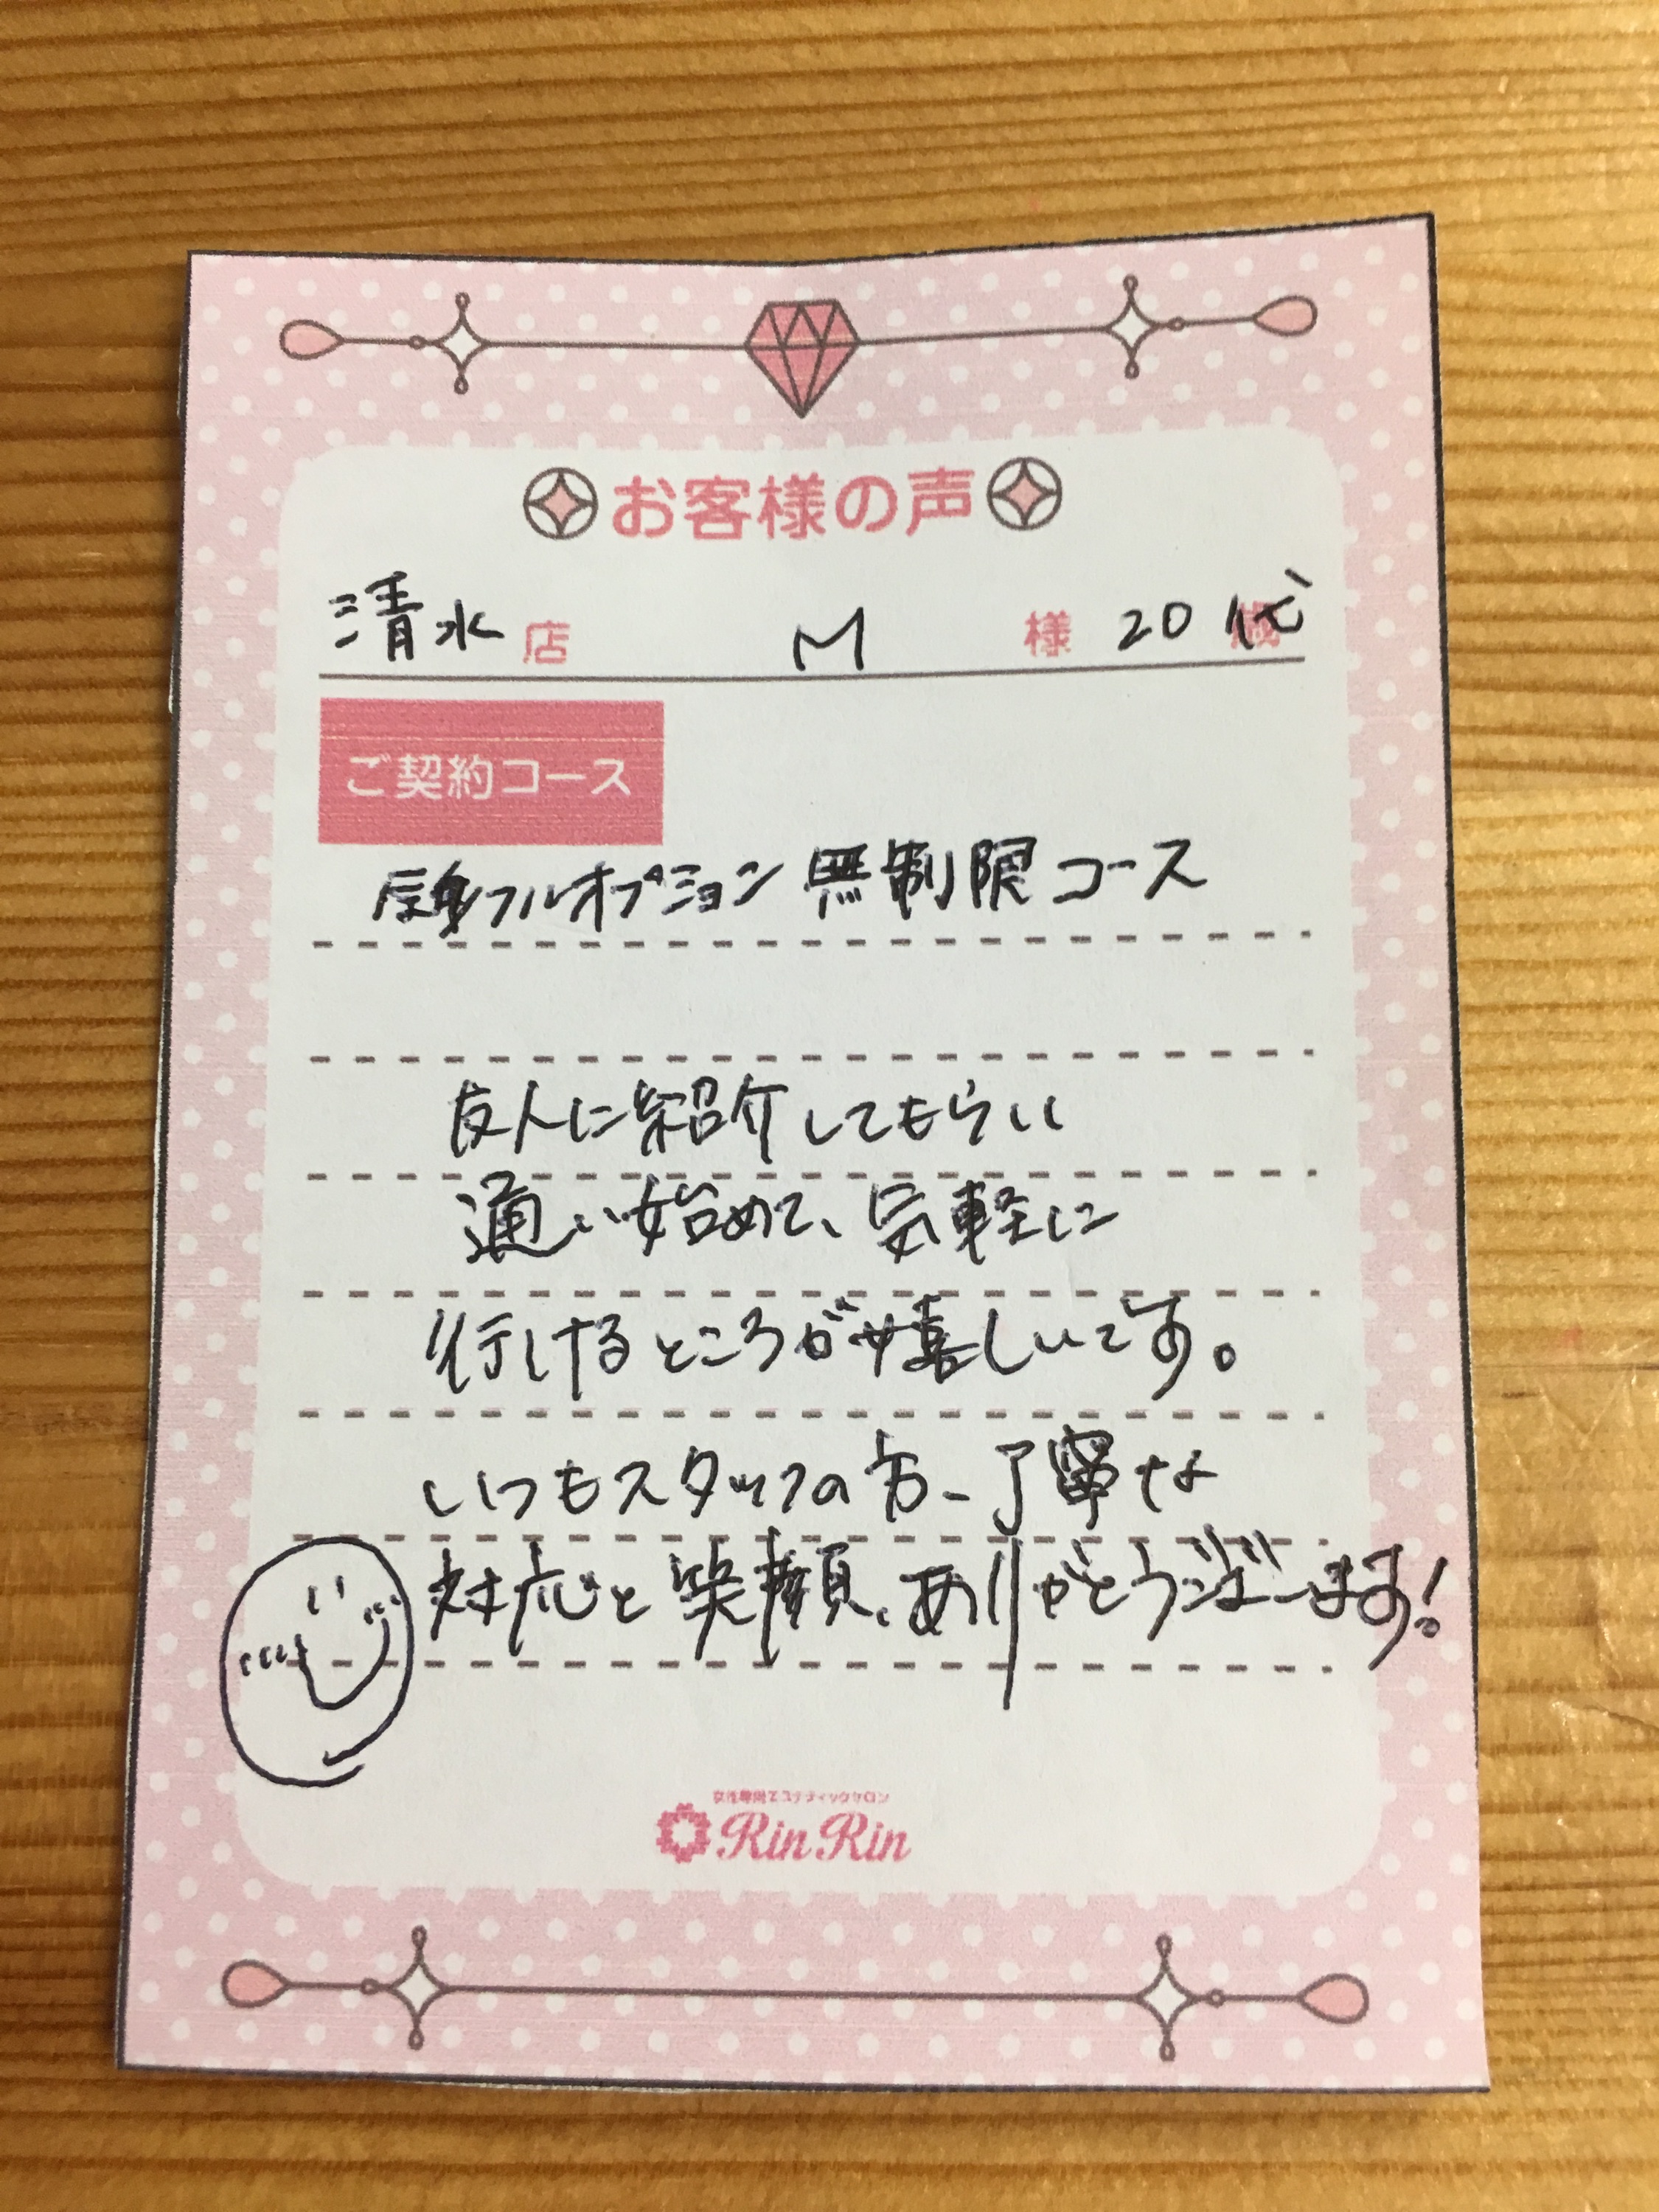 お客様の声
清水店 M 様 20代
ご契約コース
フルオプション無制限コース
友人に紹介してもらい
通い始めて、気軽に
行けるところが嬉しいです。
いつもスタッフの方、丁寧な
対応と笑顔、ありがとうございます!
女性専用エステティックサロン
RinRin